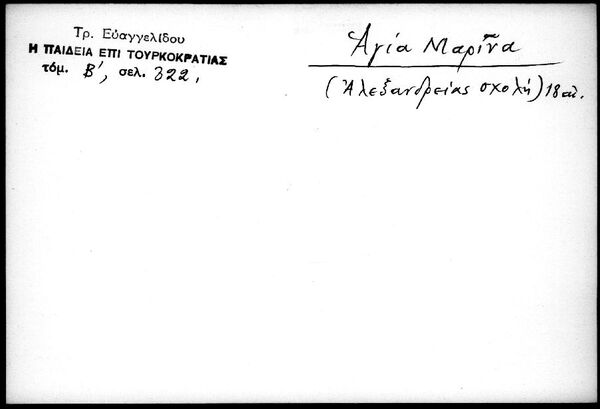 Τρ. Εὐαγγελίδου
Η ΠΑΙΔΕΙΑ ΕΠΙ ΤΟΥΡΚΟΚΡΑΤΙΑΣ
τόμ. Β', σελ. 322.
Ἁγία Μαρῖνα
(Ἀλεξανδρείας σχολή) 18 αἰ.